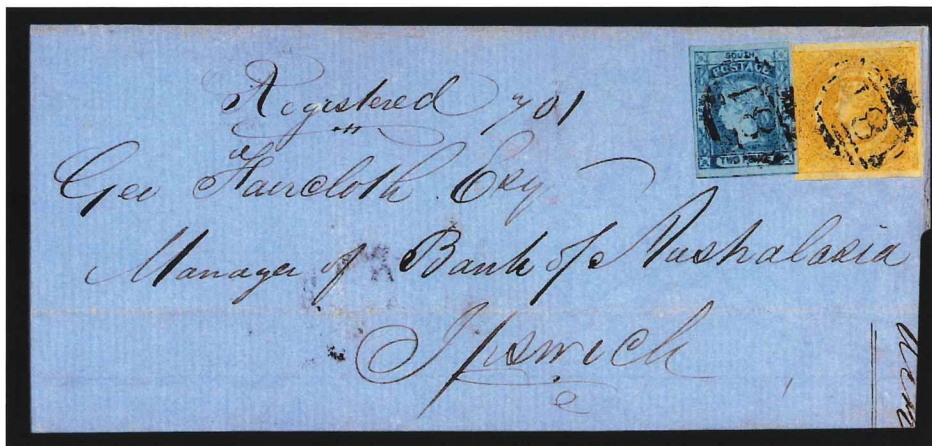 Registered 701
Geo Faircloth Esq
Manager of Bank of Australasia
Ipswich
SOUTH
POSTAGE
TWO PENCE
81
81